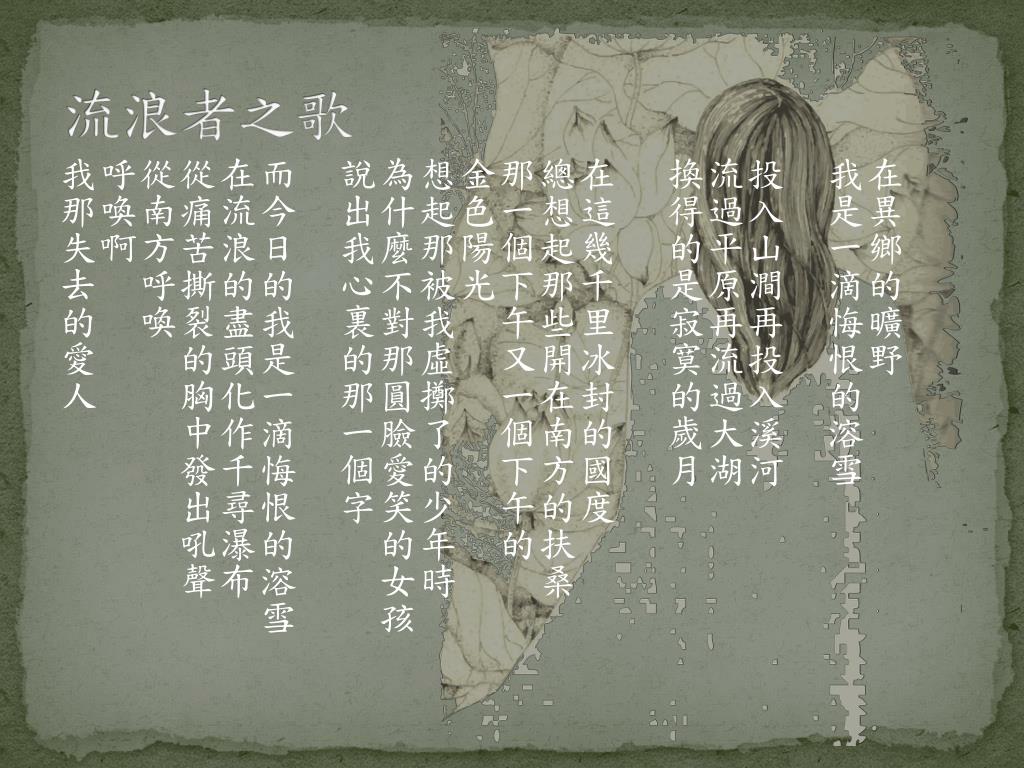 流浪者之歌
在異鄉的曠野
我是一滴悔恨的溶雪
投入山澗再投入溪河
流過平原再流過大湖
換得的是寂寞的歲月
在這幾千里冰封的國度
總想起那些開在南方的扶桑
那一個下午又一個下午的
金色陽光
想起那被我虛擲了的少年時
為什麼不對那圓臉愛笑的女孩
說出我心裏的那一個字
而今日的我是一滴悔恨的溶雪
在流浪的盡頭化作千尋瀑布
從痛苦撕裂的胸中發出吼聲
從南方呼喚
呼喚啊
我那失去的愛人